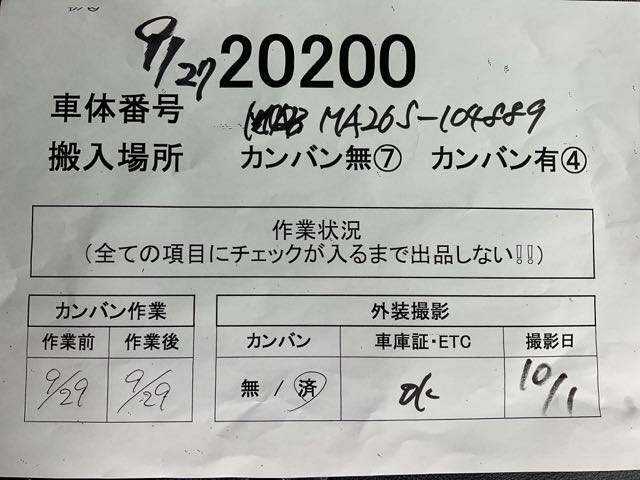 9/27 20200
車体番号 MA26S-104889
搬入場所 カンバン無⑦ カンバン有④
作業状況
(全ての項目にチェックが入るまで出品しない!!)
カンバン作業 外装撮影
作業前 作業後 カンバン 車庫証・ETC 撮影日
9/29 9/29 無 / 済 ok 10/1